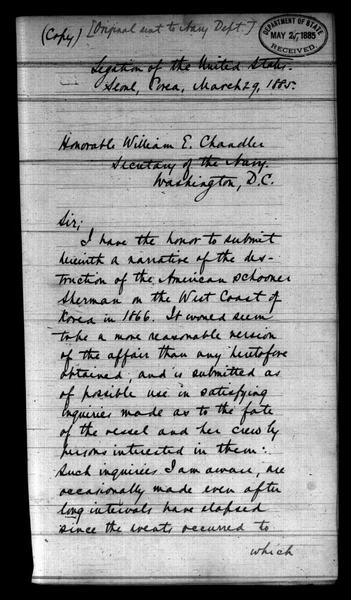 (Copy) [Original sent to Navy Dept.]
DEPARTMENT OF STATE
MAY 25, 1885
RECEIVED.
Legation of the United States.
Seoul, Corea, March 29, 1885.
Honorable William E. Chandler
Secretary of the Navy.
Washington, D.C.
Sir;
I have the honor to submit
herewith a narrative of the des-
truction of the American schooner
Sherman on the West Coast of
Korea in 1866. It would seem
to be a more reasonable version
of the affair than any heretofore
obtained; and is submitted as
of possible use in satisfying
inquiries made as to the fate
of the vessel and her crew by
persons interested in them:
Such inquiries I am aware, are
occasionally made even after
long intervals have elapsed
since the events occurred to
which